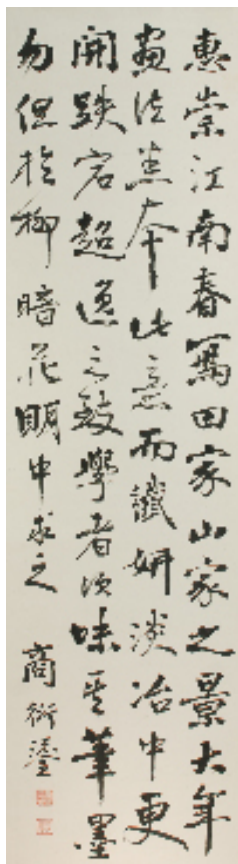 惠崇江南春寫田家山家之景大年
畫法盡本此意而纖妍淡冶中更
開跌宕超逸之致學者須味其筆墨
勿但於柳暗花明中求之
商衍鎏